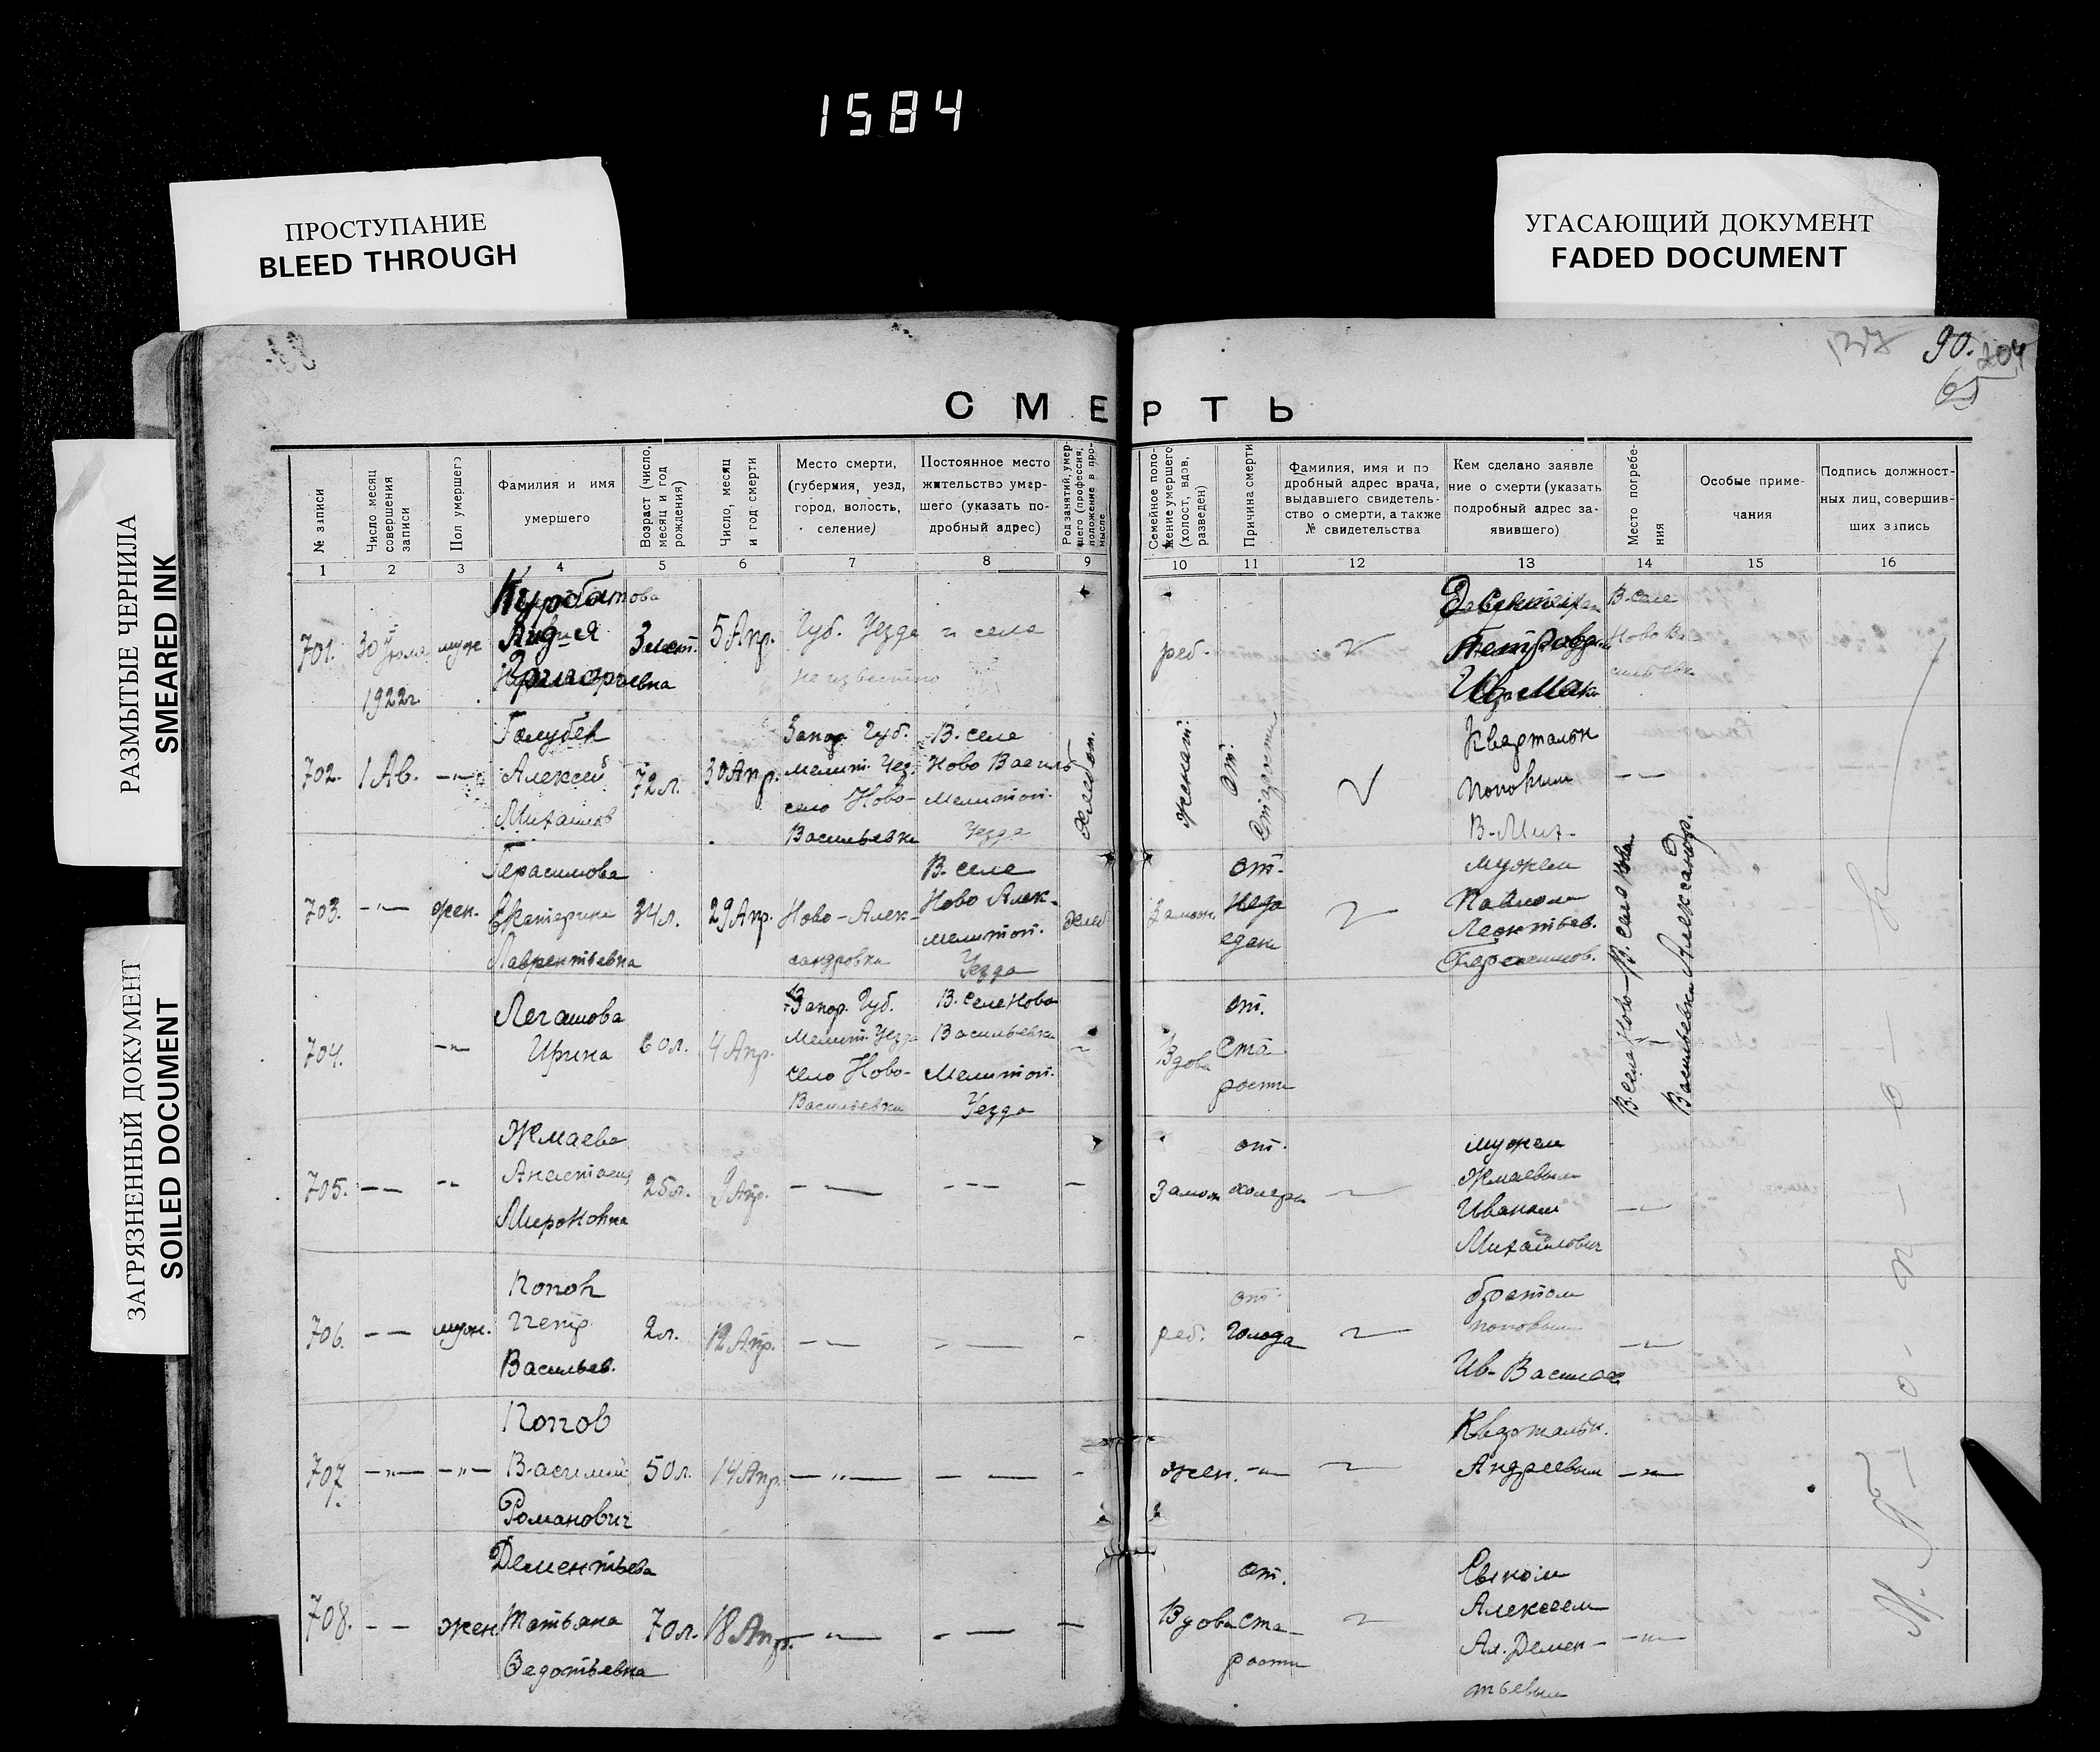 1584
ПРОСТУПАНИЕ
BLEED THROUGH
УГАСАЮЩИЙ ДОКУМЕНТ
FADED DOCUMENT
РАЗМЫТЫЕ ЧЕРНИЛА
SMEARED INK
ЗАГРЯЗНЕННЫЙ ДОКУМЕНТ
SOILED DOCUMENT
90.
65
СМЕРТЬ
№ записи
Число месяц
совершения
записи
Пол умершего
Фамилия и имя
умершего
Возраст (число,
месяц и год
рождения)
Число, месяц
и год смерти
Место смерти,
(губерния, уезд,
город, волость,
селение)
Постоянное место
жительство умер-
шего (указать по-
дробный адрес)
Род занятий, умер-
шего (профессия,
положение в про-
мысле
Семейное поло-
жение умершего
(холост, вдов,
разведен)
Причина смерти
Фамилия, имя и по
дробный адрес врача,
выдавшего свидетель-
ство о смерти, а также
№ свидетельства
Кем сделано заявле
ние о смерти (указать
подробный адрес за-
явившего)
Место погребе-
ния
Особые приме-
чания
Подпись должност-
ных лиц, совершив-
ших запись
1 2 3 4 5 6 7 8 9 10 11 12 13 14 15 16
701.
30
1922г.
муж
Курбатова
Лидия
Григорьевна
5 Апр.
Губ. Уезда и села
не известно
реб.
В. селе
Ново Ва
сильевк
702.
1 Ав.
Голубев
Алексей
Михаилов
72 л.
30 Апр.
Запор Губ.
мелит. Уез.
село Ново-
Васильевка
В. селе
Ново Василь
Мелитоп.
Уезда
хлебоп.
женат.
от.
Старости
Квартальн
Поповым
В. Мих-
703.
жен.
Герасимова
Екатерина
Лаврентьевна
34 л.
29 Апр.
Ново-Алек-
сандровка
В. селе
Ново Алек-
мелитоп.
Уезда
хлеб
Замож.
от.
недо
едан
мужем
Павлом
Леонтьев.
Герасимов.
704.
Легашова
Ирина
60 л.
4 Апр.
Запор. Губ.
Мелит. Уезда
село Ново-
Васильевка
В. селе Ново
Васильевка
Мелитоп.
Уезда
Вдова
от.
Ста
рости
В. села Ново
Васильевка
В. села Ново
Александр.
705.
Жмаева
Анастасия
Мироновна
25 л.
9 Апр.
Замож
от.
холеры
мужем
Жмаевым
Иваном
Михайлович
706.
муж.
Попов
Петр
Васильев.
2 л.
12 Апр.
реб.
от
голода
братом
Поповым
Ив. Василев
707.
Попов
Василий
Романович
50 л.
14 Апр.
жен.
Квартальн.
Андреевым
708.
жен.
Дементьева
Татьяна
Федотьевна
70 л.
18 Апр.
Вдова
от.
Ста-
рости
Сыном
Алексеем
Ал. Демен-
тьевым